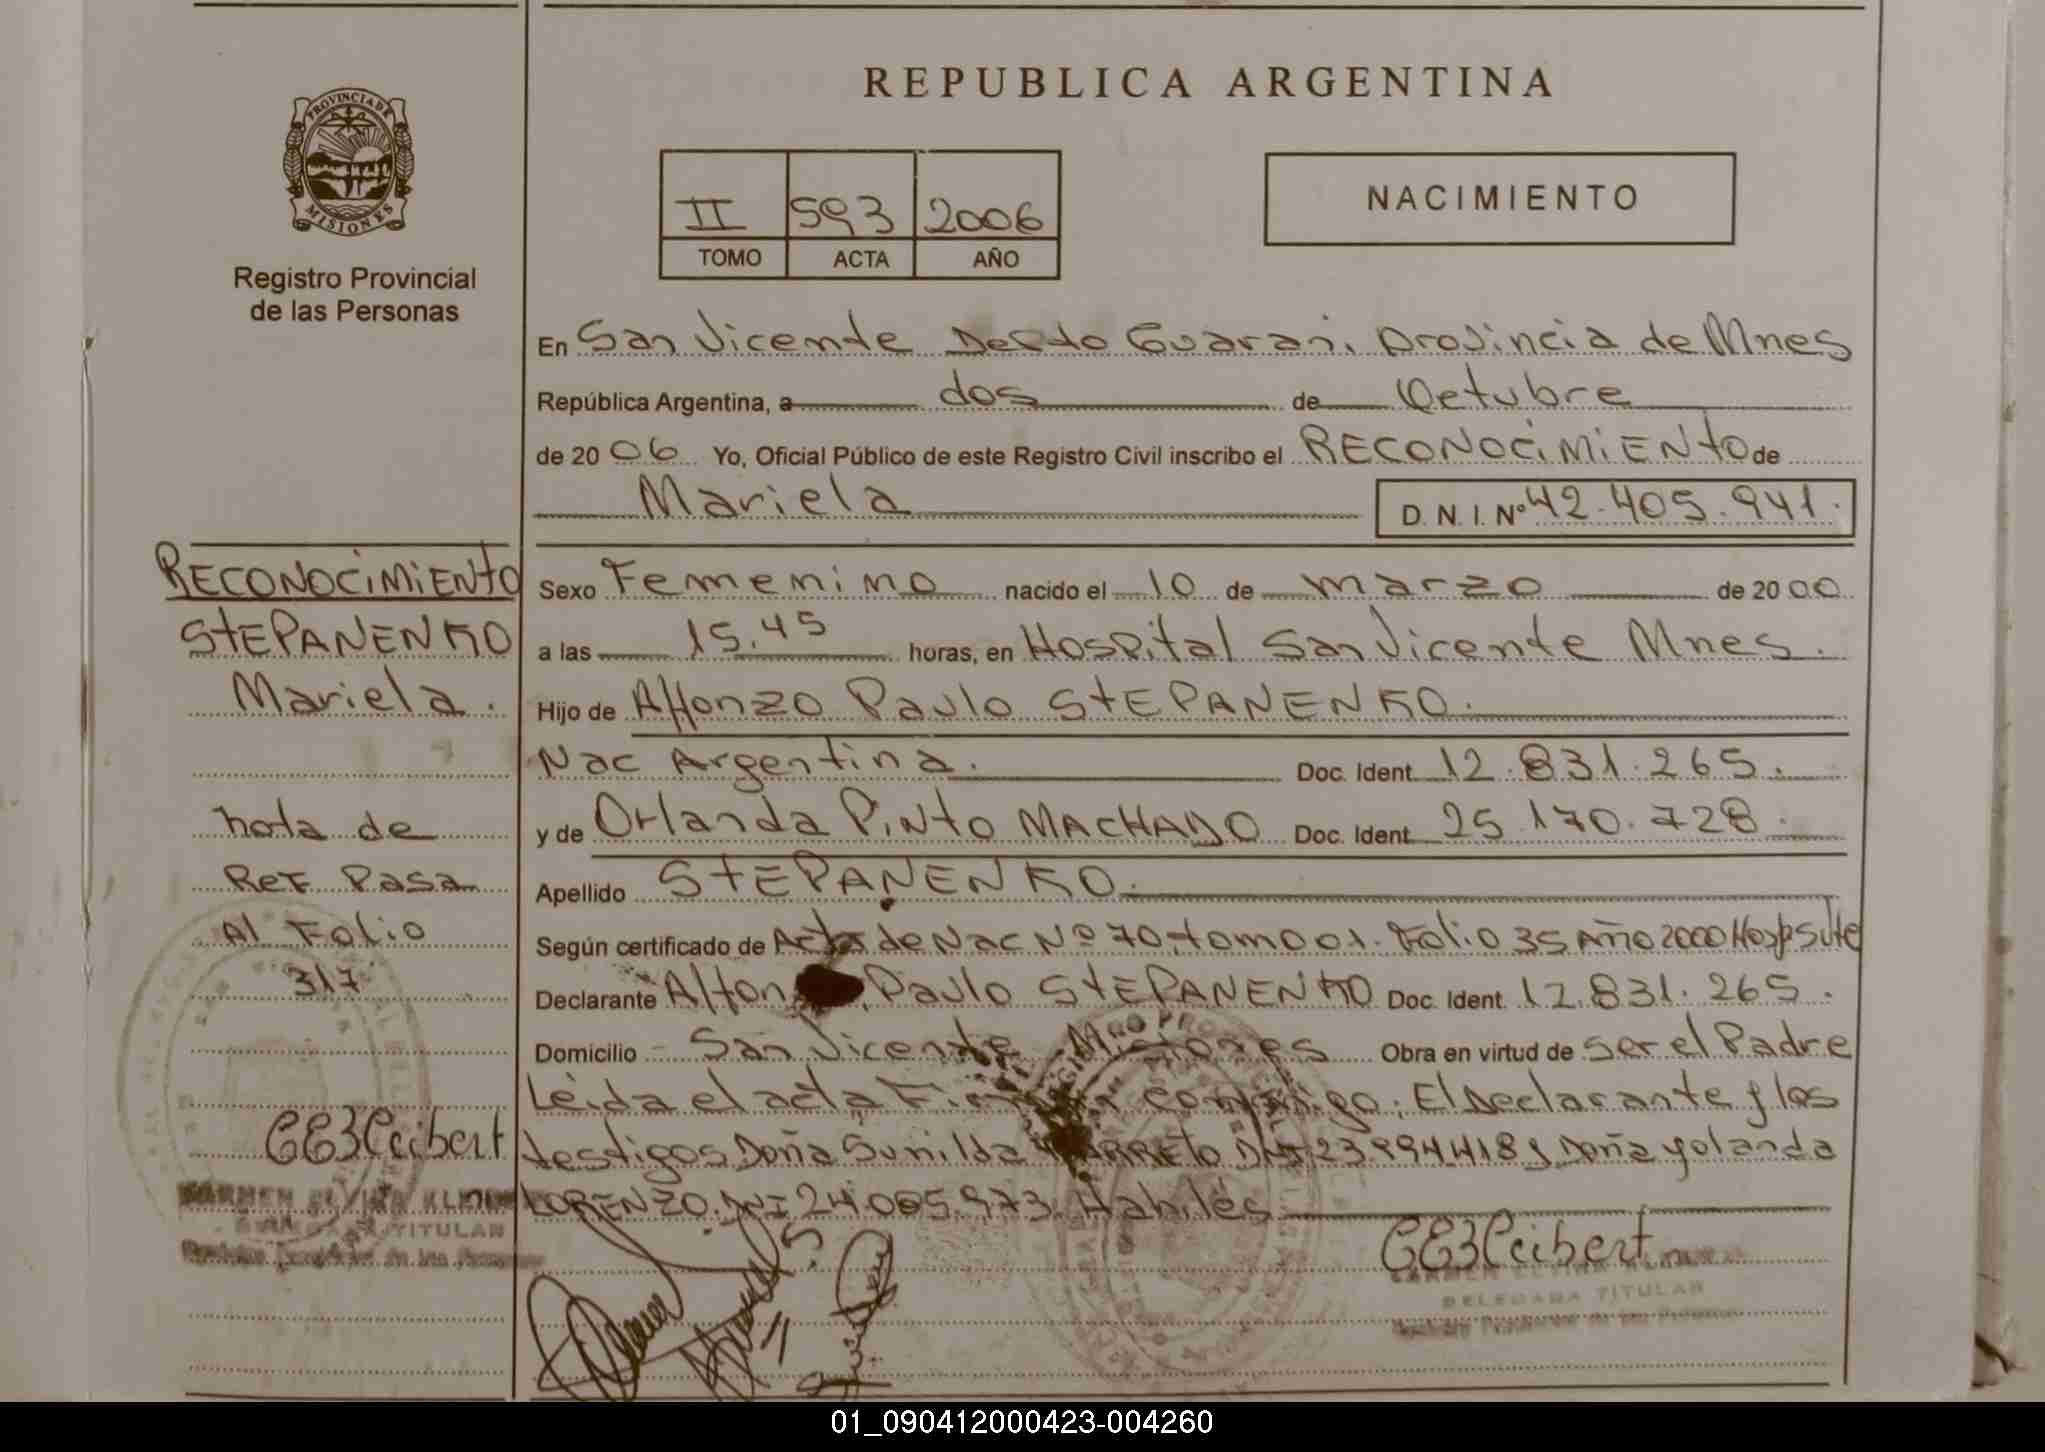 REPUBLICA ARGENTINA
PROVINCIA DE
MISIONES
Registro Provincial
de las Personas
II 593 2006
TOMO ACTA AÑO
NACIMIENTO
En San Vicente Depto Guarani. Provincia de Mnes
República Argentina, a dos de Octubre
de 20 06 Yo, Oficial Público de este Registro Civil inscribo el RECONOCIMIENTO de
Mariela D. N. I. Nº 42.405.941.
RECONOCIMIENTO
STEPANENKO
Mariela.
nota de
Ref. Pasa
Al Folio
317
CE3Ceibert
CARMEN ELVIRA
TITULAR
Sexo Femenino nacido el 10 de marzo de 2000
a las 15.45 horas, en Hospital San Vicente Mnes.
Hijo de Alfonzo Paulo STEPANENKO.
Nac Argentina. Doc. Ident. 12.831.265.
y de Orlanda PiNto MACHADO Doc. Ident. 25.170.728.
Apellido STEPANENKO.
Según certificado de Acta de Nac Nº 70, tomo 01. Folio 35 Año 2000 Hosp. S Vte
Declarante Alfon Paulo STEPANENKO Doc. Ident. 12.831.265.
Domicilio San Vicente Misiones Obra en virtud de ser el Padre
Leida el acta Firman conmigo. El Declarante y los
testigos Doña Sunilda BARRETO DNI 23.994.418 y Doña yolanda
LORENZO. DNI 24.005.973 Habiles
CE3Ceibert
CARMEN ELVIRA
DELEGADA TITULAR
01_090412000423-004260